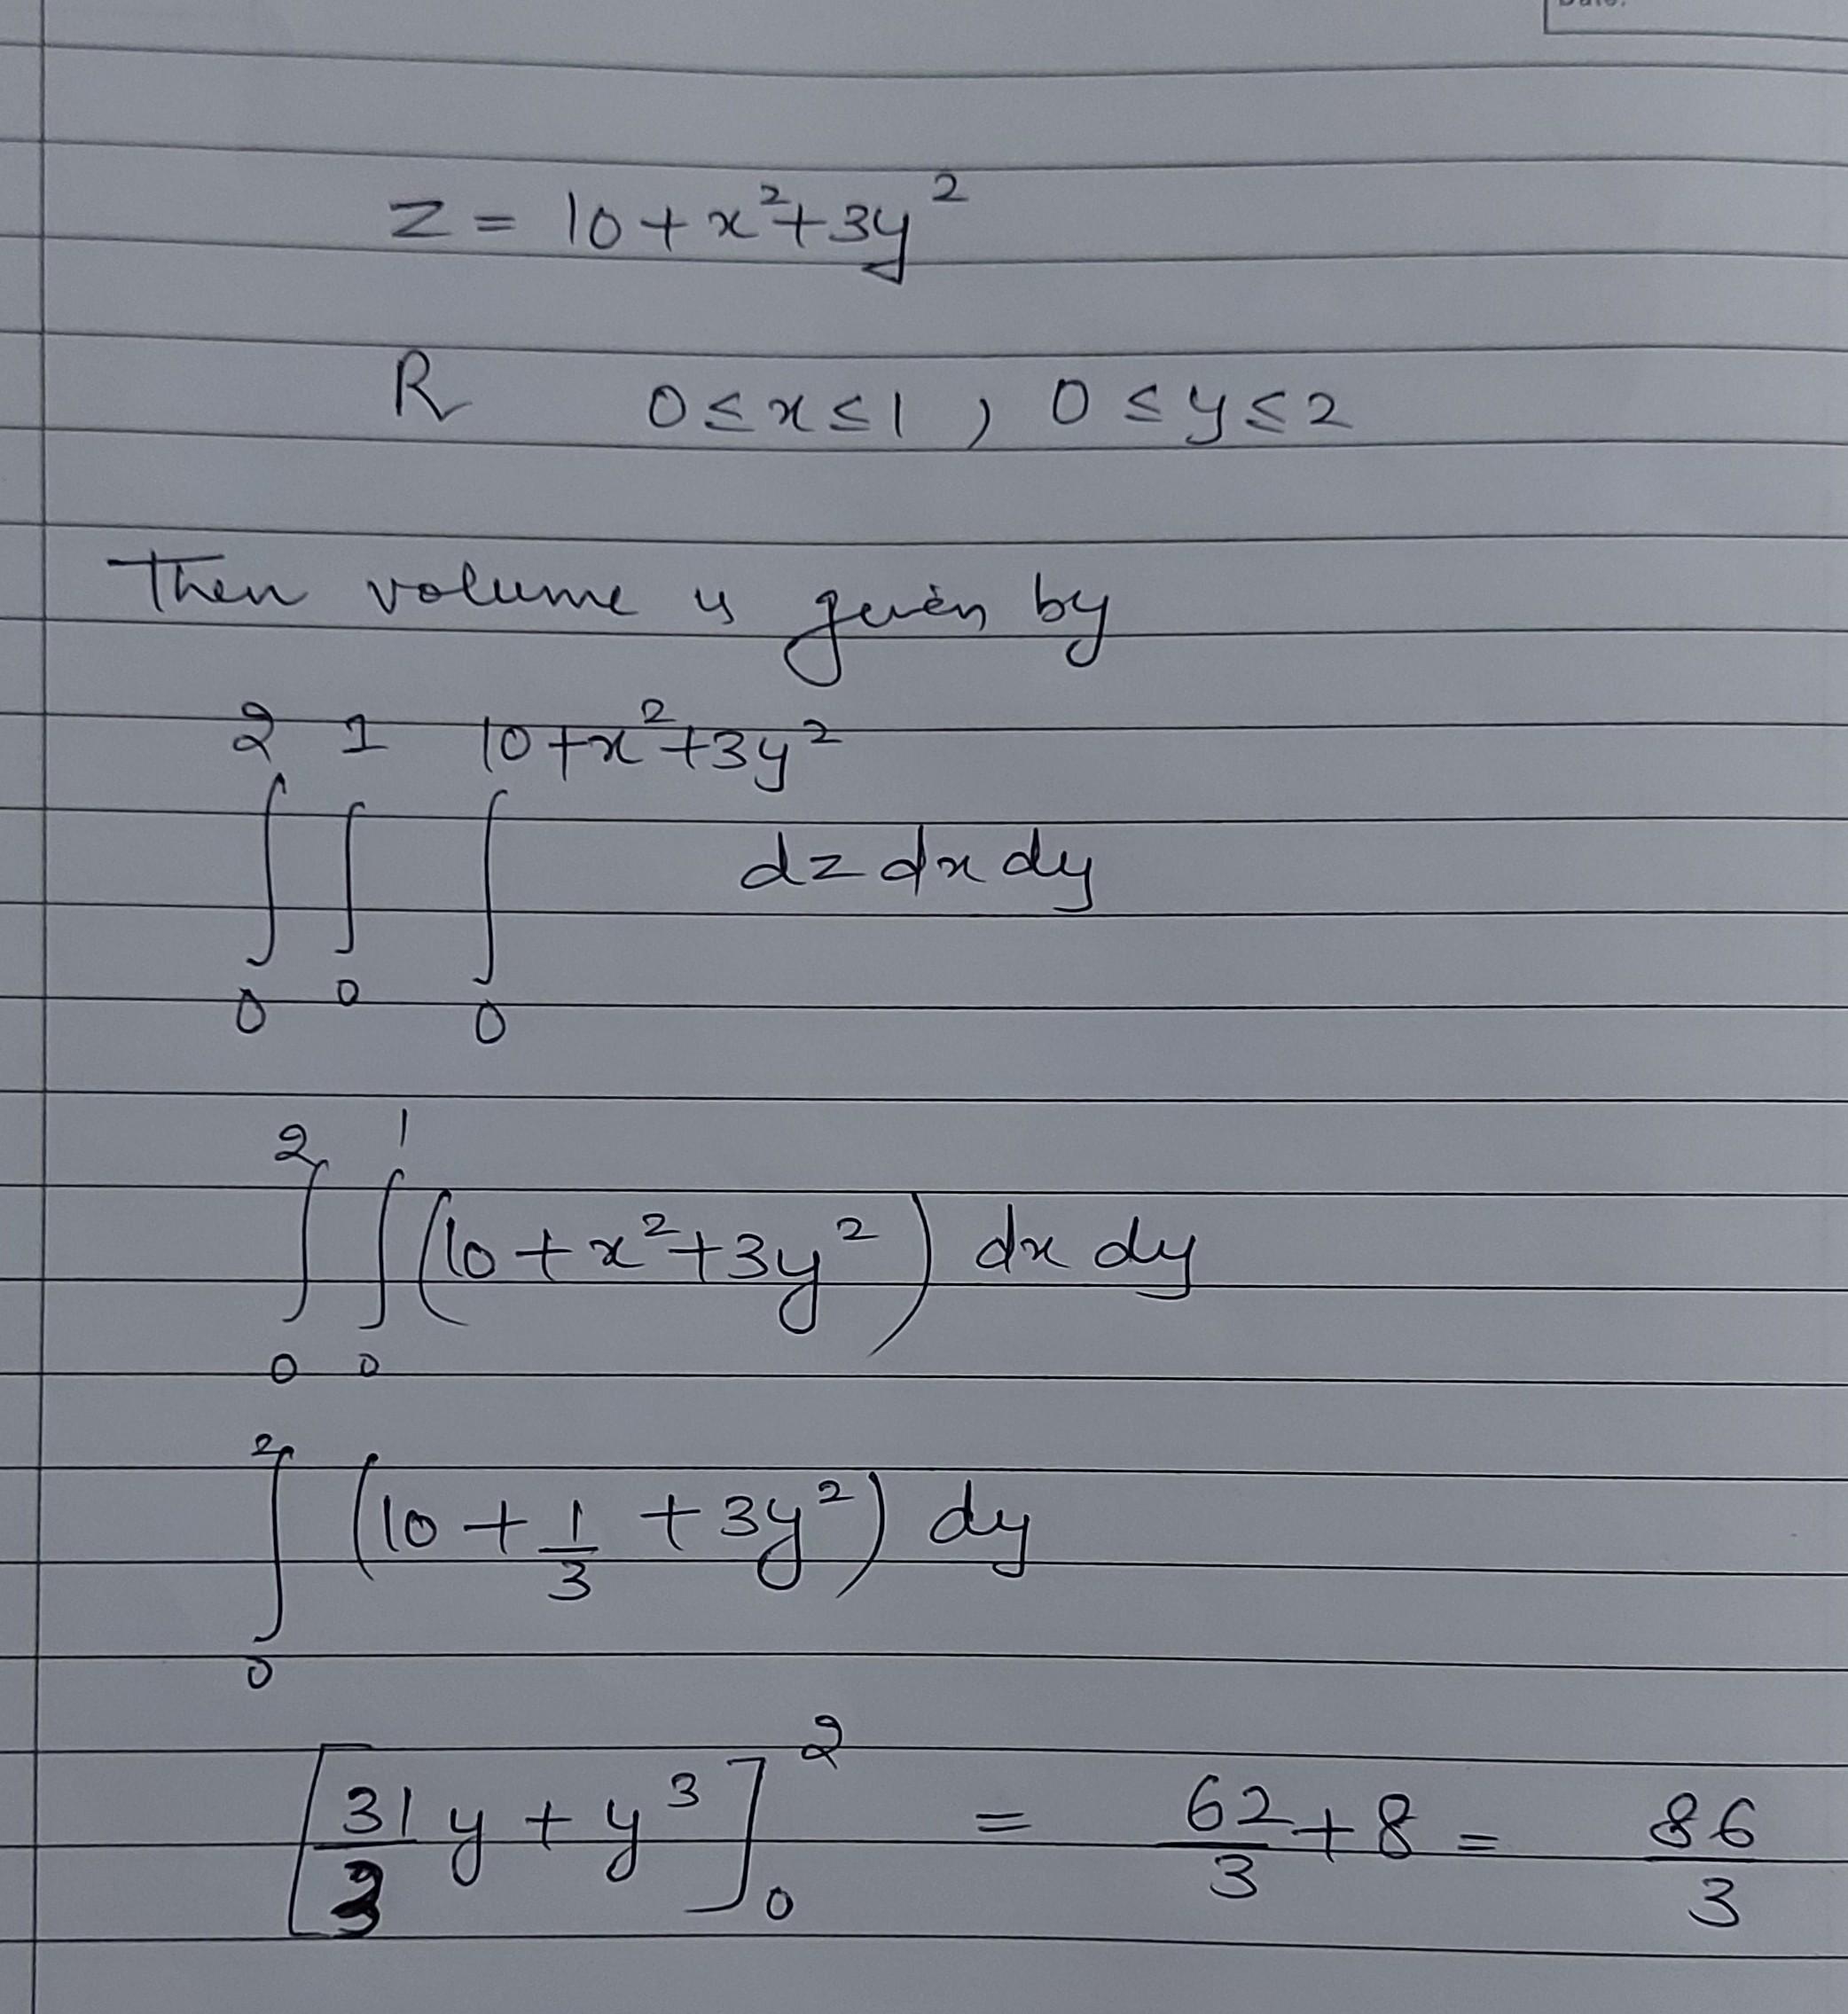 z = 10 + x² + 3y²
R 0 ≤ x ≤ 1 , 0 ≤ y ≤ 2
Then volume is given by
∫₀² ∫₀¹ ∫₀^(10+x²+3y²) dz dx dy
∫₀² ∫₀¹ (10 + x² + 3y²) dx dy
∫₀² (10 + 1/3 + 3y²) dy
[31/3 y + y³]₀² = 62/3 + 8 = 86/3